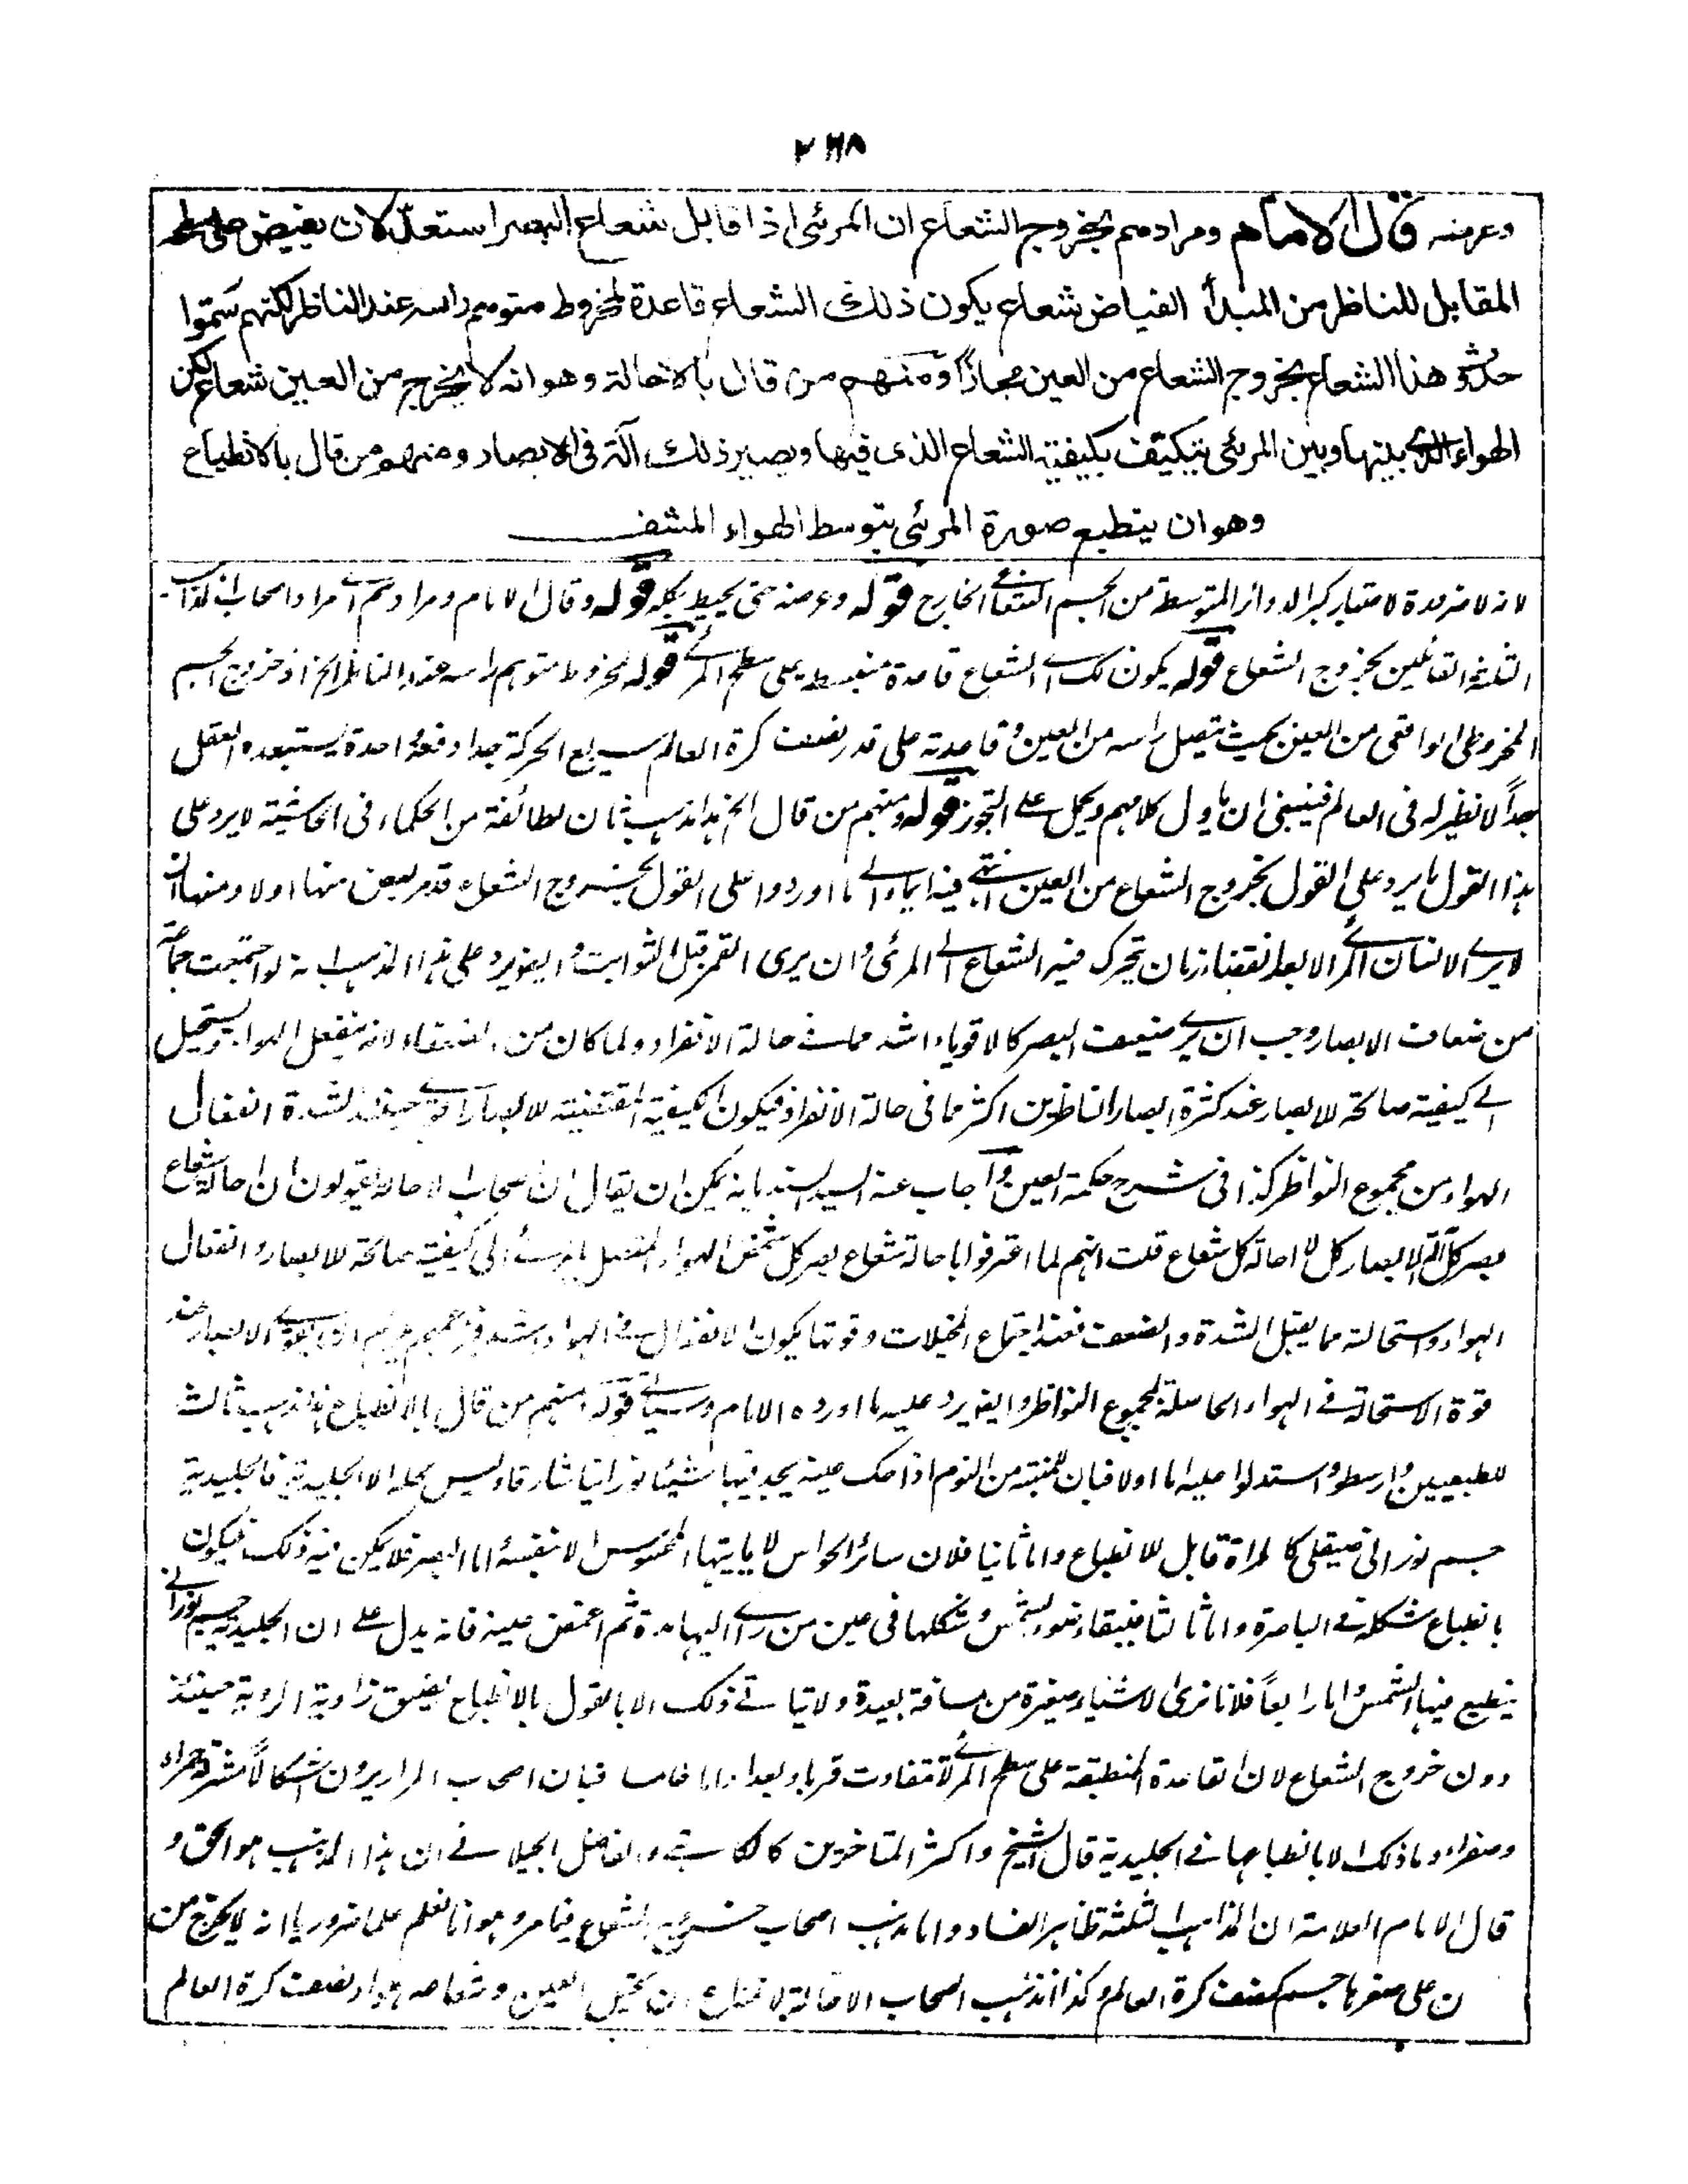 ٢٦٨
وعرضه قال الامام ومرادهم بخروج الشعاع ان المرئى اذا قابل شعاع البصر استعد لان يفيض على سطحه
المقابل للناظر من المبدأ الفياض شعاع يكون ذلك الشعاع قاعدة لمخروط متوهم راسه عند الناظر لكنهم سموا
حدوث هذا الشعاع بخروج الشعاع من العين مجازاً ومنهم من قال بالاحالة وهو انه لا يخرج من العين شعاع لكن
الهواء الذى بينها وبين المرئى يتكيف بكيفية الشعاع الذى فيها ويصير ذلك آلة فى الابصار ومنهم من قال بالانطباع
وهو ان ينطبع صورة المرئى بتوسط الهواء المشف
لانه لا ضرورة لاعتبار كبر الدوائر المتوسطة من الجسم الشعاعى الخارج قوله وعرضه حتى يحيط بكله قوله وقال الامام ومرادهم اے مراد اصحاب المذاهب
الثلثة القائلين بخروج الشعاع قوله يكون ذلك اے الشعاع قاعدة منبسط على سطح المرئے قوله لمخروط متوهم راسه عند الناظر الخ اذ خروج الجسم
المخروطى الواقعى من العين بحيث يتصل راسه من العين و قاعدته على قدر نصف كرة العالم سريع الحركة جدا دفعة واحدة يستبعده العقل
جداً لا نظير له فى العالم فينبغى ان ياول كلامهم ويحمل على التجوز قوله ومنهم من قال الخ هذا مذهب ثان لطائفة من الحكماء فى الحاشية لا يرد على
هذا القول ما يرد على القول بخروج الشعاع من العين انتهے فيه ايماء الے ما اوردوا على القول بخروج الشعاع قد مر بعض منها اولا ومنها ان
لا يرے الانسان المرئے الا بعد انقضاء زمان تحرك فيه الشعاع الے المرئى و ان يرى القمر قبل الثوابت و ايضا يرد على هذا المذهب انه لو اجتمعت جماعة
من ضعاف الابصار وجب ان يرے ضعيف البصر كالاقوياء اشد مما فے حالة الانفراد ولما كان من الضعفاء لانه ينفعل الهواء ويستحيل
الے كيفية صالحة للابصار عند كثرة ابصار الناظرين اكثر مما فى حالة الانفراد فيكون الكيفية المقتضية للابصار اقوے حينئذ لشدة انفعال
الهواء من مجموع النواظر كذا فى شرح حكمة العين و اجاب عنه السيد السند بانه يمكن ان يقال ان اصحاب الاحالة يقولون ان احالة شعاع
بصر كل آلة لابصار كل لا احالة كل شعاع قلت انهم لما اعترفوا باحالة شعاع بصر كل شخص الهواء المتصل بالمرئے الى كيفية صالحة للابصار و انفعال
الهواء و استحالته مما يقبل الشدة و الضعف فعند اجتماع المخيلات و قوتها يكون الانفعال فے الهواء اشد الابصار عند
قوة الاستحالة فے الهواء الحاصلة لمجموع النواظر و ايضا يرد عليه ما اورده الامام و سياتے قوله ومنهم من قال بالانطباع هذا مذهب ثالث
للطبيعيين و ارسطو و استدلوا عليه اما اولا فبان المنتبه من النوم اذا حك عينه يجد فيها شيئا نورانيا شارقا و ليس محله الا الجليدية فالجليدية
جسم نورانى صيقلى كالمرآة قابل للانطباع و اما ثانيا فلان سائر الحواس لا ياتيها المحسوس الا بنفسه اما البصر فلا يمكن فيه ذلك فيكون
بانطباع شكله فے الباصرة و اما ثالثا فببقاء ضوء الشمس و شكلها فى عين من رأے اليها مدة ثم اغمض عينه فانه يدل على ان الجليدية جسم نورانے
ينطبع فيها الشمس و اما رابعاً فلانا نرى الاشياء صغيرة من مسافة بعيدة ولا يتاتے ذلك الا بالقول بالانطباع لضيق زاوية الروية حينئذ
دون خروج الشعاع لان القاعدة المنطبقة على سطح المرئے لا تتفاوت قربا و بعدا و اما خامسا فبان اصحاب المرار يرون اشكالاً مشرقة حمراء
وصفراء و ما ذلك الا بانطباعها فے الجليدية قال الشيخ و اكثر المتاخرين كالكاتبے و الفاضل الجيلانے ان هذا المذهب هو الحق و
قال الامام العلامة ان المذاهب الثلثة ظاهر الفساد و اما مذهب اصحاب خروج الشعاع فيما مر و هو انا نعلم علما ضروريا انه لا يخرج من
ن على صغرها جسم كنصف كرة العالم و كذا مذهب اصحاب الاحالة لامتناع ان يحيل العين و شعاعه هواء نصف كرة العالم